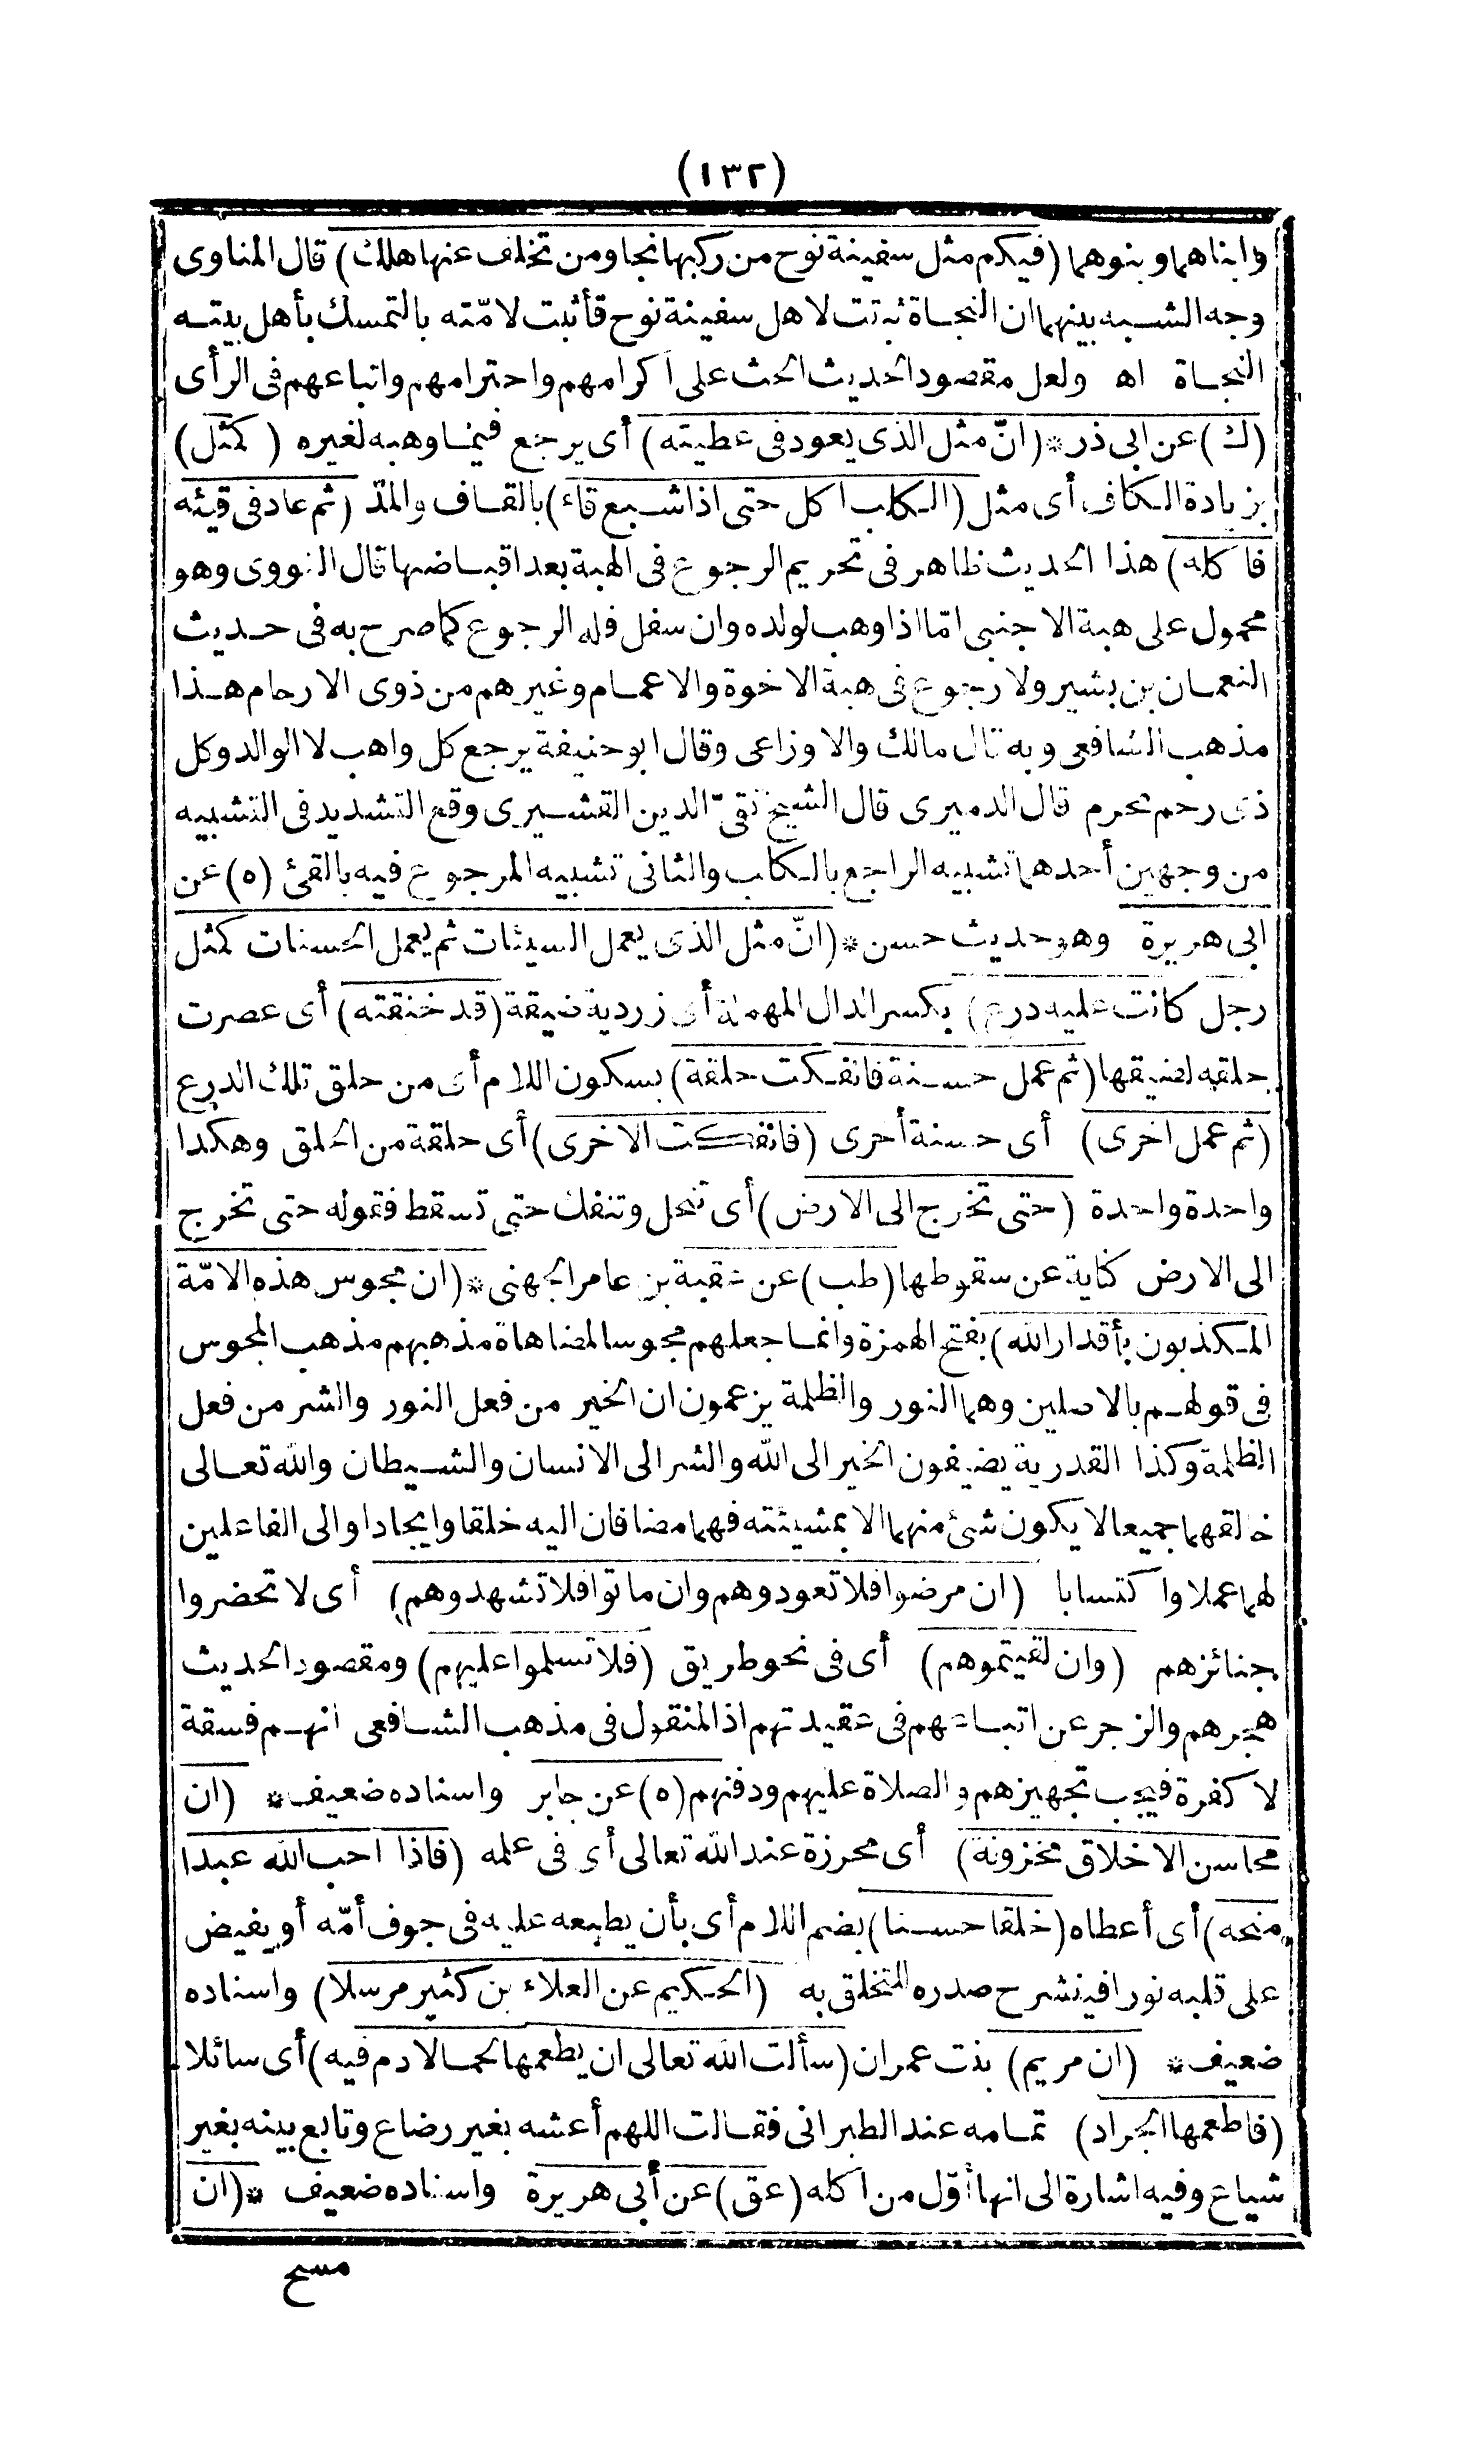 (١٣٢)
وابناهما وبنوهما (فيكم مثل سفينة نوح من ركبها نجا ومن تخلف عنها هلك) قال المناوى
وجه الشـبه بينهما ان النجـاة ثبتت لاهل سفينة نوح فأثبت لامّته بالتمسك بأهل بيتـه
النجـاة اه ولعل مقصود الحديث الحث على اكرامهم واحترامهم واتباعهم فى الرأى
(ك) عن ابى ذر * (انّ مثل الذى يعود فى عطيته) أى يرجع فيمـا وهبه لغيره (كمثل)
بزيادة الـكاف أى مثل (الـكلب اكل حتى اذا شـبع قاء) بالقـاف والمدّ (ثم عاد فى قيئه
فاكله) هذا الحديث ظاهر فى تحريم الرجوع فى الهبة بعد اقبـاضها قال النووى وهو
محمول على هبة الاجنبى امّا اذا وهب لولده وان سفل فله الرجوع كما صرح به فى حـديث
النعمـان بن بشير ولا رجوع فى هبة الاخوة والاعمـام وغيرهم من ذوى الارحام هـذا
مذهب الشافعى وبه قال مالك والاوزاعى وقال ابو حنيفة يرجع كل واهب لا الوالد وكل
ذى رحم محرم قال الدميرى قال الشيخ تقىّ الدين القشـيرى وقع التشديد فى التشبيه
من وجهين أحدهما تشبيه الراجع بالـكلب والثانى تشبيه المرجوع فيه بالقئ (ه) عن
ابى هريرة وهو حديث حسن * (انّ مثل الذى يعمل السيئات ثم يعمل الحسنات كمثل
رجل كانت عليه درع) بكسر الدال المهملة أى زردية ضيقة (قد خنقته) أى عصرت
حلقه لضيقها (ثم عمل حسـنة فانفـكت حلقة) بسكون اللام أى من حلق تلك الدرع
(ثم عمل اخرى) أى حسنة أخرى (فانفكت الاخرى) أى حلقة من الحلق وهكذا
واحدة واحدة (حتى تخرج الى الارض) أى تنحل وتنفك حتى تسقط فقوله حتى تخرج
الى الارض كناية عن سقوطها (طب) عن عقبة بن عامر الجهنى * (ان مجوس هذه الامّة
المـكذبون بأقدار الله) بفتح الهمزة وانمـا جعلهم مجوسا لمضاهاة مذهبهم مذهب المجوس
فى قولهـم بالاصلين وهما النور والظلمة يزعمون ان الخير من فعل النور والشر من فعل
الظلمة وكذا القدرية يضيفون الخير الى الله والشر الى الانسان والشـيطان والله تعـالى
خالقهما جميعا لا يكون شئ منهما الا بمشيئته فهما مضافان اليه خلقا وايجادا والى الفاعلين
لهما عملا واكتسابا (ان مرضوا فلا تعودوهم وان ماتوا فلا تشهدوهم) أى لا تحضروا
جنائزهم (وان لقيتموهم) أى فى نحو طريق (فلا تسلموا عليهم) ومقصود الحديث
هجرهم والزجر عن اتبـاعهم فى عقيدتهم اذ المنقول فى مذهب الشـافعى انهـم فسقة
لا كفرة فيجب تجهيزهم والصلاة عليهم ودفنهم (ه) عن جابر واسناده ضعيف * (ان
محاسن الاخلاق مخزونة) أى محرزة عند الله تعالى أى فى علمه (فاذا احب الله عبدا
منحه) أى أعطاه (خلقا حسـنا) بضم اللام أى بأن يطبعه عليه فى جوف أمّه أو يفيض
على قلبه نورا فينشرح صدره للتخلق به (الحـكيم عن العلاء بن كثير مرسلا) واسناده
ضعيف * (ان مريم) بنت عمران (سألت الله تعالى ان يطعمها لحمـا لا دم فيه) أى سائلا
(فاطعمها الجراد) تمـامه عند الطبرانى فقـالت اللهم أعشه بغير رضاع وتابع بينه بغير
شياع وفيه اشارة الى انها أوّل من اكله (عق) عن أبى هريرة واسناده ضعيف * (ان
مسح